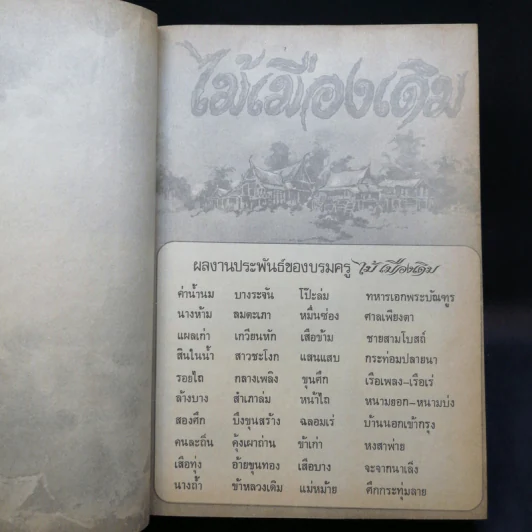 ไม้เมืองเดิม
ผลงานประพันธ์ของบรมครู ไม้ เมืองเดิม
ค่าน้ำนม บางระจัน โป๊ะล่ม ทหารเอกพระบัณฑูร
นางห้าม ลมตะเภา หมื่นซ่อง ศาลเพียงตา
แผลเก่า เกวียนหัก เสือข้าม ชายสามโบสถ์
สินในน้ำ สาวชะโงก แสนแสบ กระท่อมปลายนา
รอยไถ กลางเพลิง ขุนศึก เรือเพลง-เรือเร่
ล้างบาง สำเภาล่ม หน้าไถ หนามยอก-หนามบ่ง
สองศึก บึงขุนสร้าง ฉลอมเร่ บ้านนอกเข้ากรุง
คนละถิ่น คุ้งเผาถ่าน ข้าเก่า หงสาพ่าย
เสือทุ่ง อ้ายขุนทอง เสือบาง จะจากนาเล้ง
นางถ้ำ ข้าหลวงเดิม แม่หม้าย ศึกกระทุ่มลาย